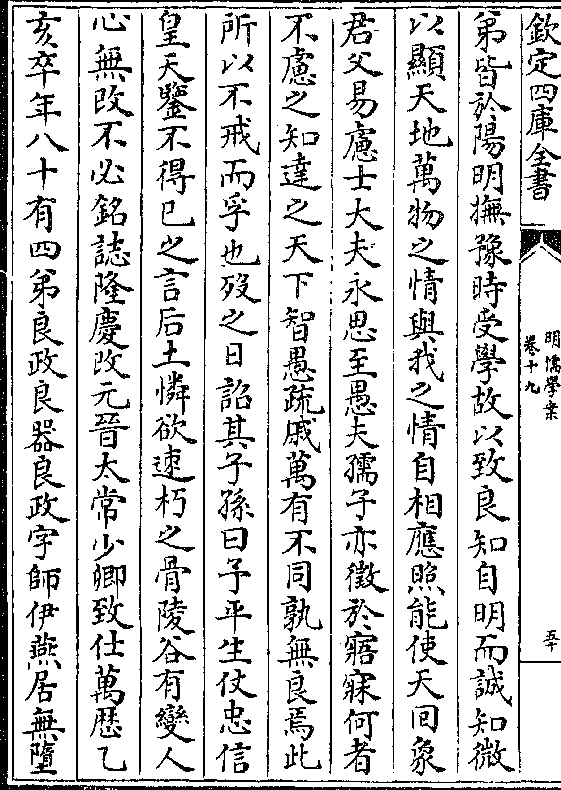 欽定四庫全書
明儒學案
卷十九
五十
弟皆於陽明撫豫時受學故以致良知自明而誠知微
以顯天地萬物之情與我之情自相應照能使天回象
君父易慮士大夫永思至愚夫孺子亦徵於寤寐何者
不慮之知達之天下智愚疏戚萬有不同孰無良焉此
所以不戒而孚也歿之日詔其子孫曰予平生仗忠信
皇天鑒不得已之言后土憐欲速朽之骨陵谷有變人
心無改不必銘誌隆慶改元晉太常少卿致仕萬歷乙
亥卒年八十有四弟良政良器良政字師伊燕居無墮